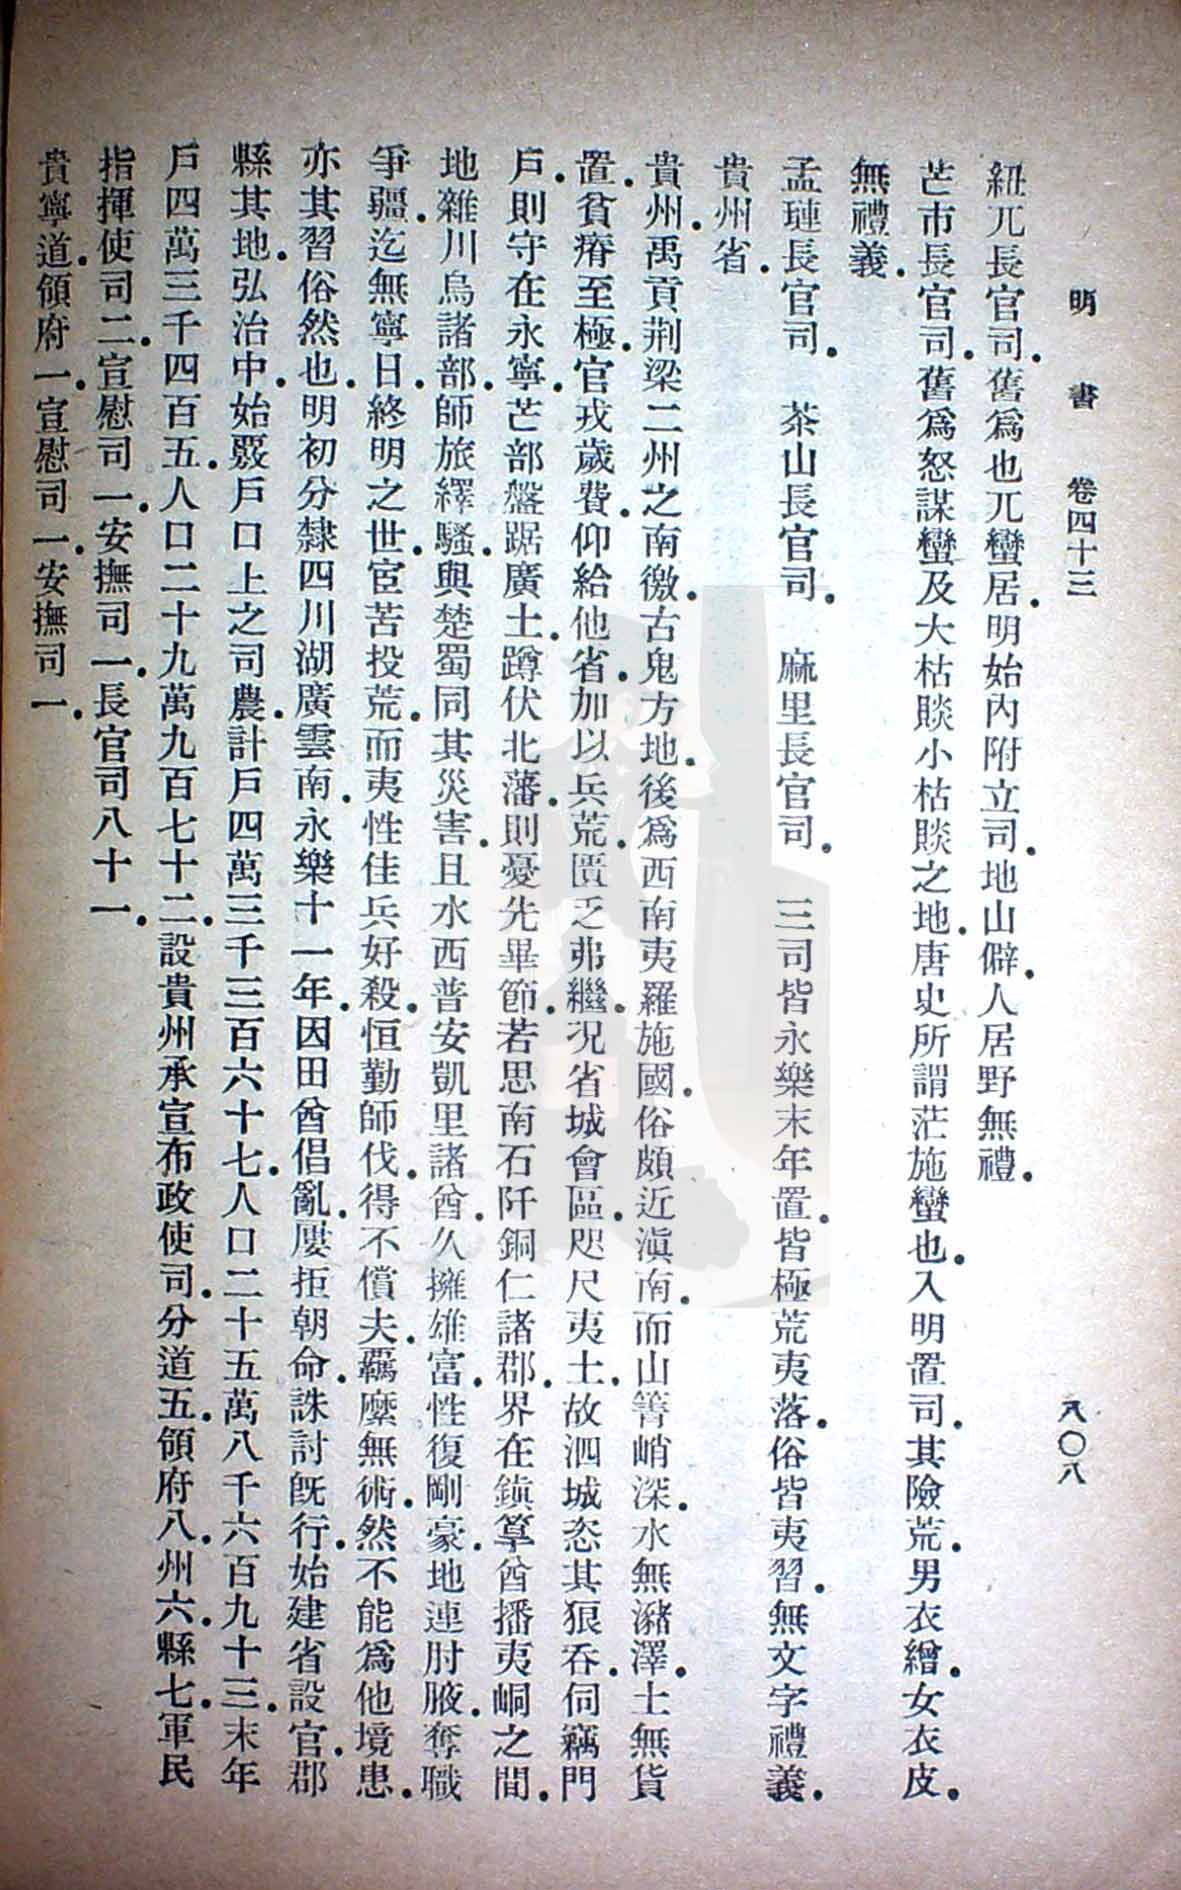 明書 卷四十三 八〇八
紐兀長官司.舊爲也兀蠻居.明始內附立司.地山僻.人居野無禮.
芒市長官司.舊爲怒謀蠻及大枯賧小枯賧之地.唐史所謂茫施蠻也.入明置司.其險荒.男衣繒.女衣皮.
無禮義.
孟璉長官司. 茶山長官司. 麻里長官司. 三司皆永樂末年置.皆極荒夷落.俗皆夷習.無文字禮義.
貴州省.
貴州.禹貢荆梁二州之南徼.古鬼方地.後爲西南夷羅施國.俗頗近滇南.而山箐峭深.水無瀦澤.土無貨
置.貧瘠至極.官戎歲費.仰給他省.加以兵荒.匱乏弗繼.況省城會區.咫尺夷土.故泗城恣其狠吞.伺竊門
戶.則守在永寧.芒部盤踞廣土.蹲伏北藩.則憂先畢節.若思南石阡銅仁諸郡.界在鎮筸酋播夷峒之間.
地雜川烏諸部.師旅繹騷.與楚蜀同其災害.且水西普安凱里諸酋.久擁雄富.性復剛豪.地連肘腋.奪職
爭疆.迄無寧日.終明之世.宦苦投荒.而夷性佳兵好殺.恒勤師伐.得不償夫.羈縻無術.然不能爲他境患.
亦其習俗然也.明初分隸四川湖廣雲南.永樂十一年.因田酋倡亂.屢拒朝命.誅討旣行.始建省設官.郡
縣其地.弘治中.始覈戶口上之司農.計戶四萬三千三百六十七.人口二十五萬八千六百九十三.末年
戶四萬三千四百五.人口二十九萬九百七十二.設貴州承宣布政使司.分道五.領府八.州六.縣七.軍民
指揮使司二.宣慰司一.安撫司一.長官司八十一.
貴寧道.領府一.宣慰司一.安撫司一.